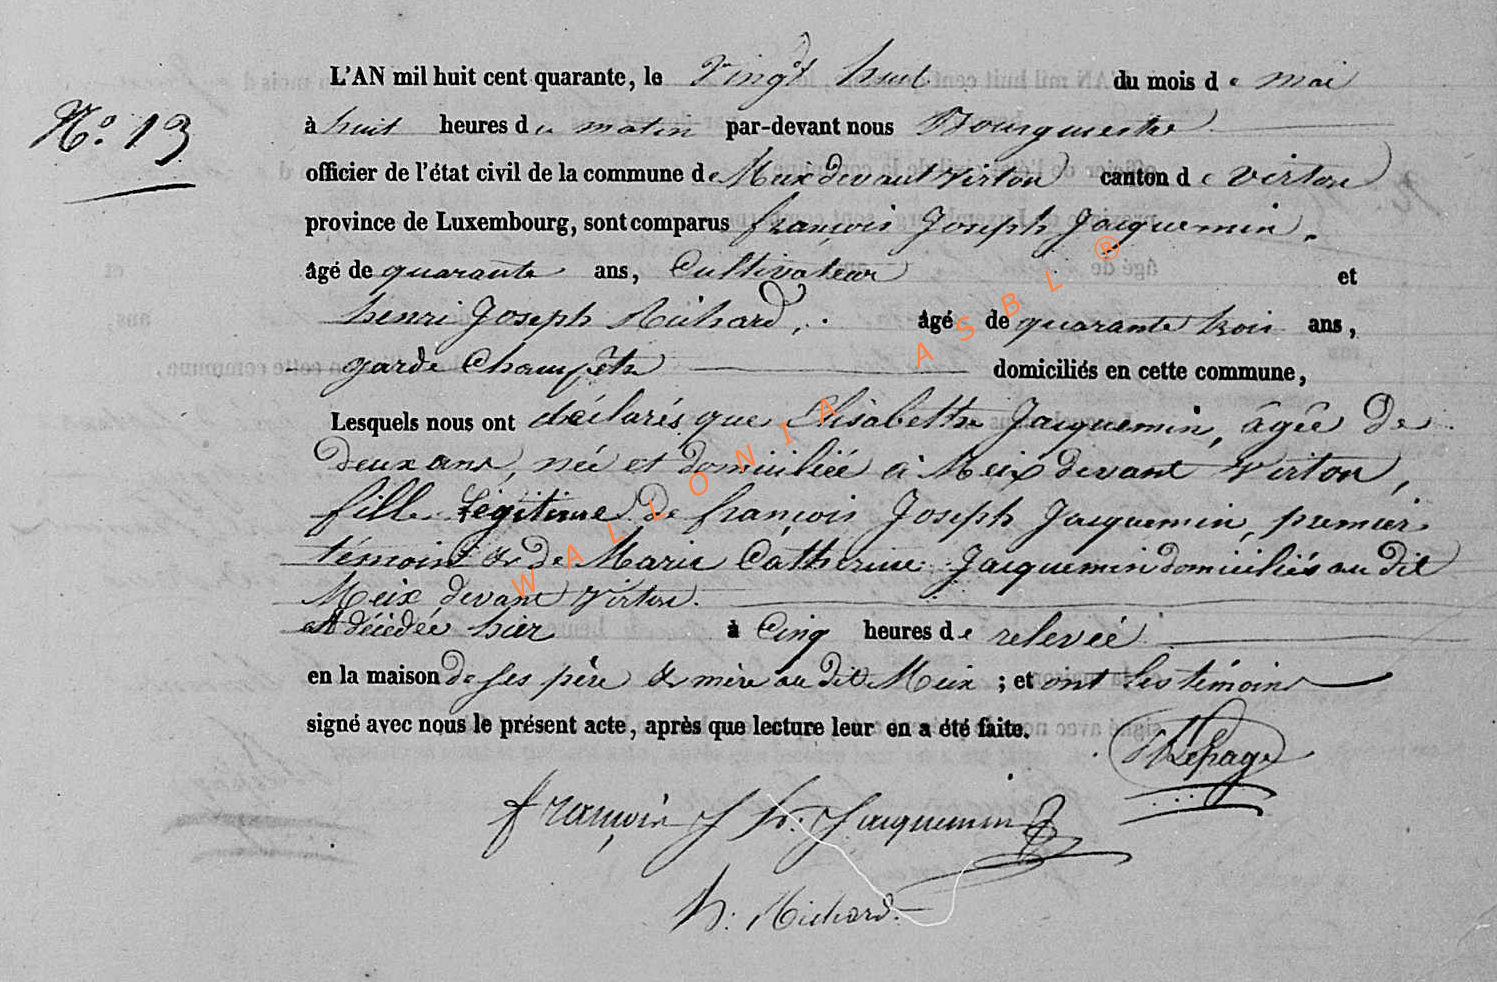 N.° 13
L'AN mil huit cent quarante, le Vingt huit du mois de mai
à huit heures du matin par-devant nous Bourgmestre
officier de l'état civil de la commune de Meix devant virton canton de virton
province de Luxembourg, sont comparus françois Joseph Jacquemin,
âgé de quarante ans, Cultivateur et
henri Joseph Michard, âgé de quarante trois ans,
garde Champêtre domiciliés en cette commune,
Lesquels nous ont déclarés que Elisabethe Jacquemin, âgée De
Deux ans, née et domiciliée à Meix devant Virton,
fille Légitime De françois Joseph Jacquemin, premier
témoint & de Marie Catherine Jacquemin domiciliés au dit
Meix devant Virton.
est décédée hier à Cinq heures de relevée
en la maison de ses père & mère au dit Meix ; et ont les témoins
signé avec nous le présent acte, après que lecture leur en a été faite.
Lepage
françois J ph: Jacquemin
h. Michard.
WALLONIA ASBL ®